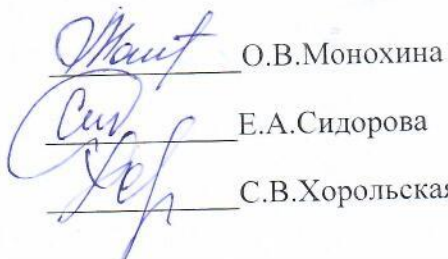 О.В.Монохина
Е.А.Сидорова
С.В.Хорольская